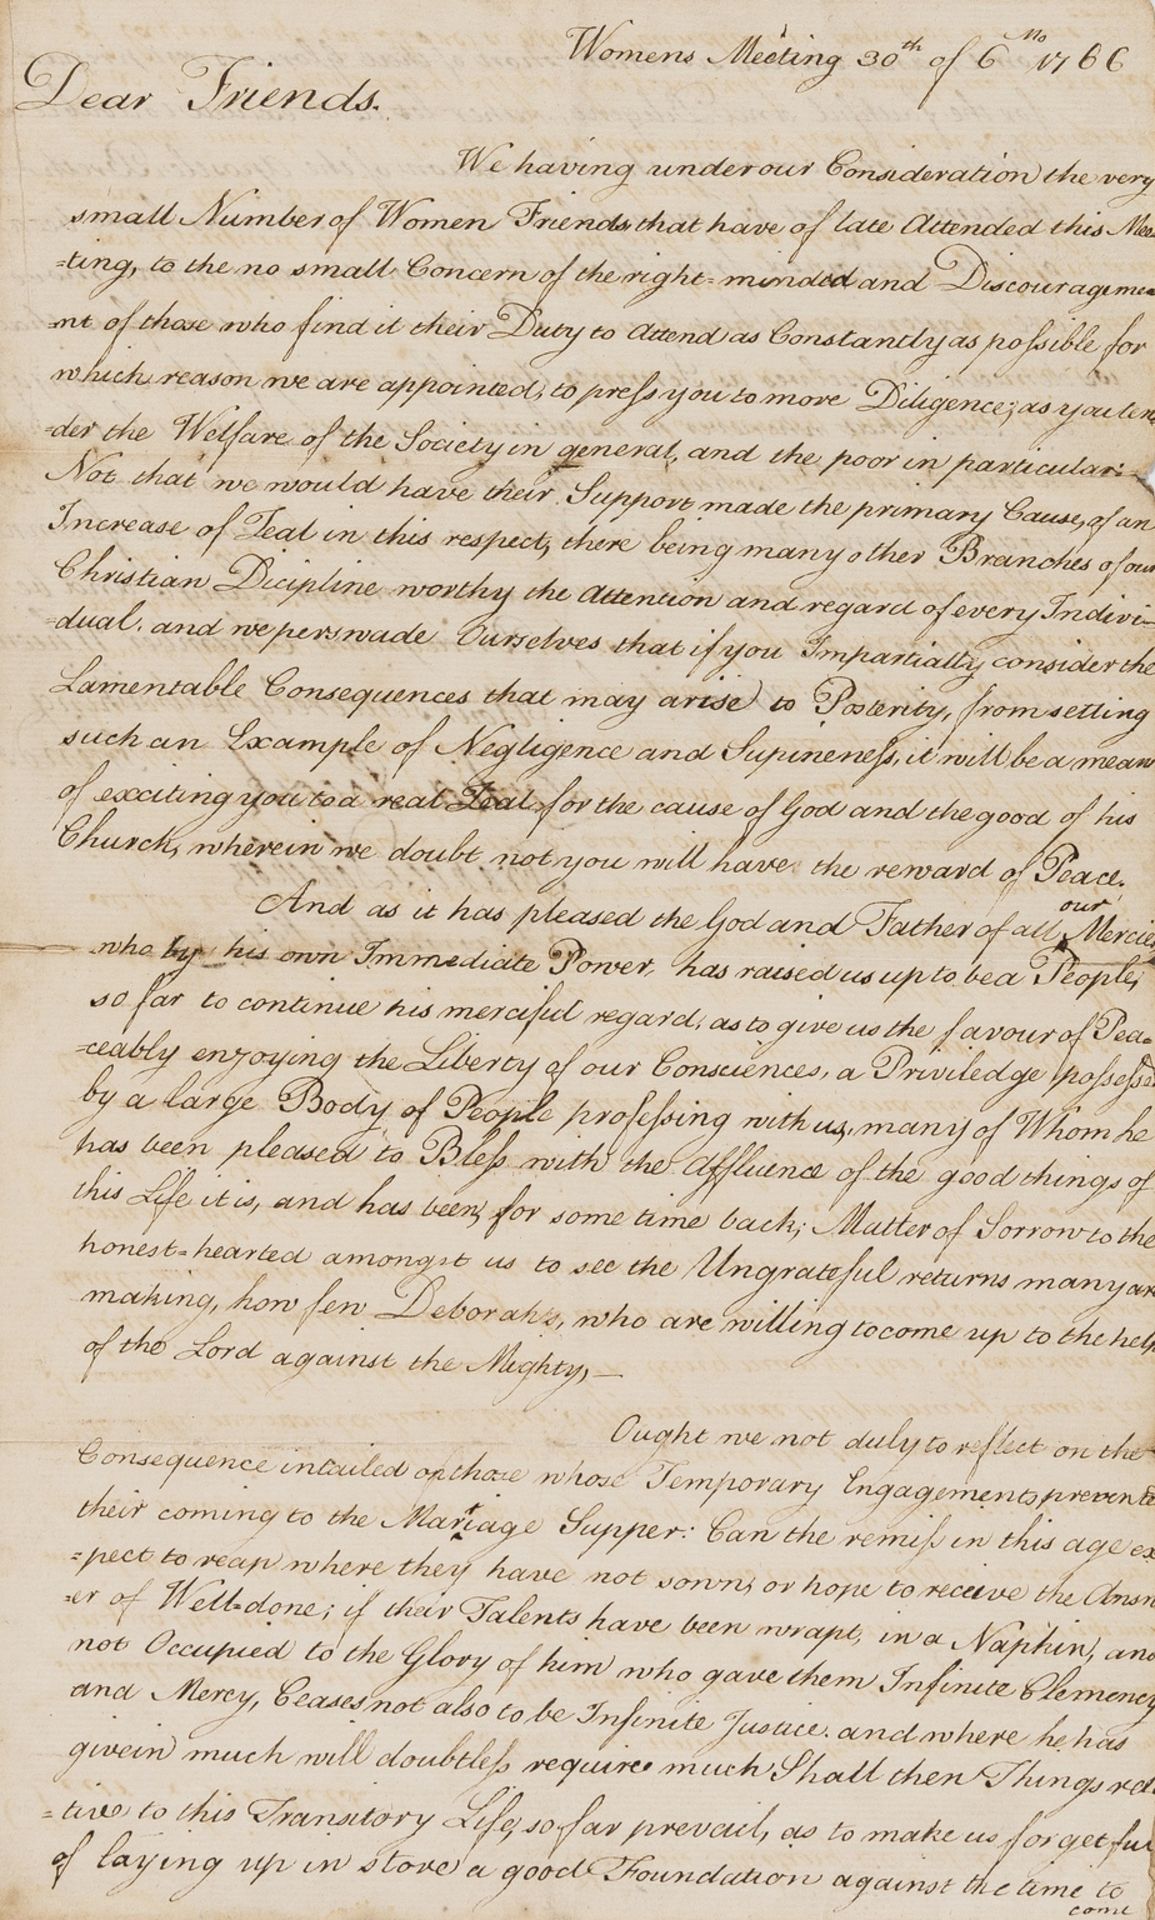 Womens Meeting 30th of 6 Mo 1766
Dear Friends.
We having under our Consideration the very
small Number of Women Friends that have of late Attended this Mee-
=ting, to the no small Concern of the right=minded and Discourageme=
=nt of those who find it their Duty to Attend as Constantly as possible for
which reason we are appointed, to press you to more Diligence; as you ten=
=der the Welfare of the Society in general, and the poor in particular:
Not that we would have their Support made the primary Cause, of an
Increase of Zeal in this respect, there being many other Branches of our
Christian Dicipline worthy the Attention and regard of every Indivi-
=dual. and we perswade Ourselves that if you Impartially consider the
Lamentable Consequences that may arise to Posterity, from setting
such an Example of Negligence and Supineness, it will be a mean
of exciting you to a real Zeal for the cause of God and the good of his
Church, wherein we doubt not you will have the reward of Peace.
And as it has pleased the God and Father of all our Mercies
who by his own Immediate Power, has raised us up to be a People,
so far to continue his merciful regard, as to give us the favour of Pea=
=ceably enjoying the Liberty of our Consciences, a Priviledge possessed
by a large Body of People professing with us, many of Whom he
has been pleased to Bless with the Affluence of the good things of
this Life it is, and has been, for some time back; Matter of Sorrow to the
honest=hearted amongst us to see the Ungrateful returns many are
making, how few Deborahs, who are willing to come up to the help
of the Lord against the Mighty,—
Ought we not duly to reflect on the
Consequence intailed on those whose Temporary Engagements prevented
their coming to the Marriage Supper: Can the remiss in this age ex
=pect to reap where they have not sown, or hope to receive the Answ
=er of Well=done; if their Talents have been wrapt, in a Napkin, and
not Occupied to the Glory of him who gave them Infinite Clemency
and Mercy, Ceases not also to be Infinite Justice. and where he has
givein much will doubtless require much Shall then Things rela
=tive to this Transitory Life, so far prevail, as to make us forgetful
of laying up in store a good Foundation against the time to
come